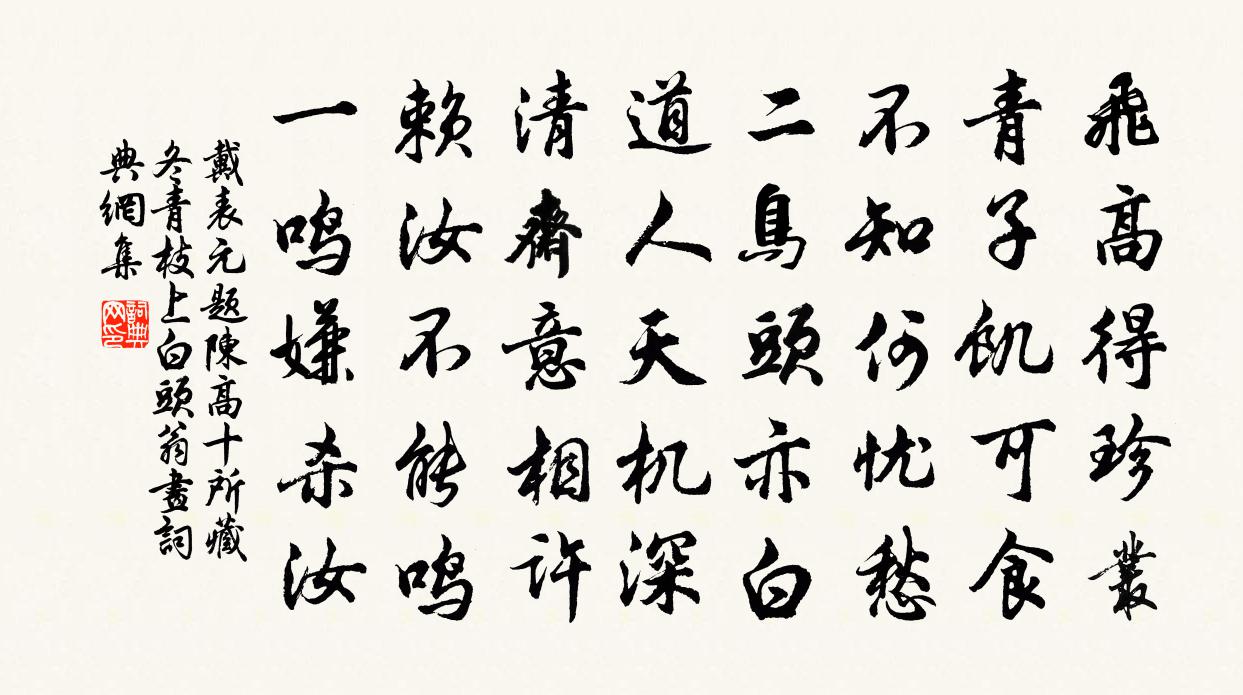 飛高得珍叢
青子飢可食
不知何忧愁
二鳥頭亦白
道人天机深
清齋意相許
賴汝不能鳴
一鳴嫌杀汝
戴表元題陳高十所藏
冬青枝上白頭翁畫詞
典網集
詞典网印